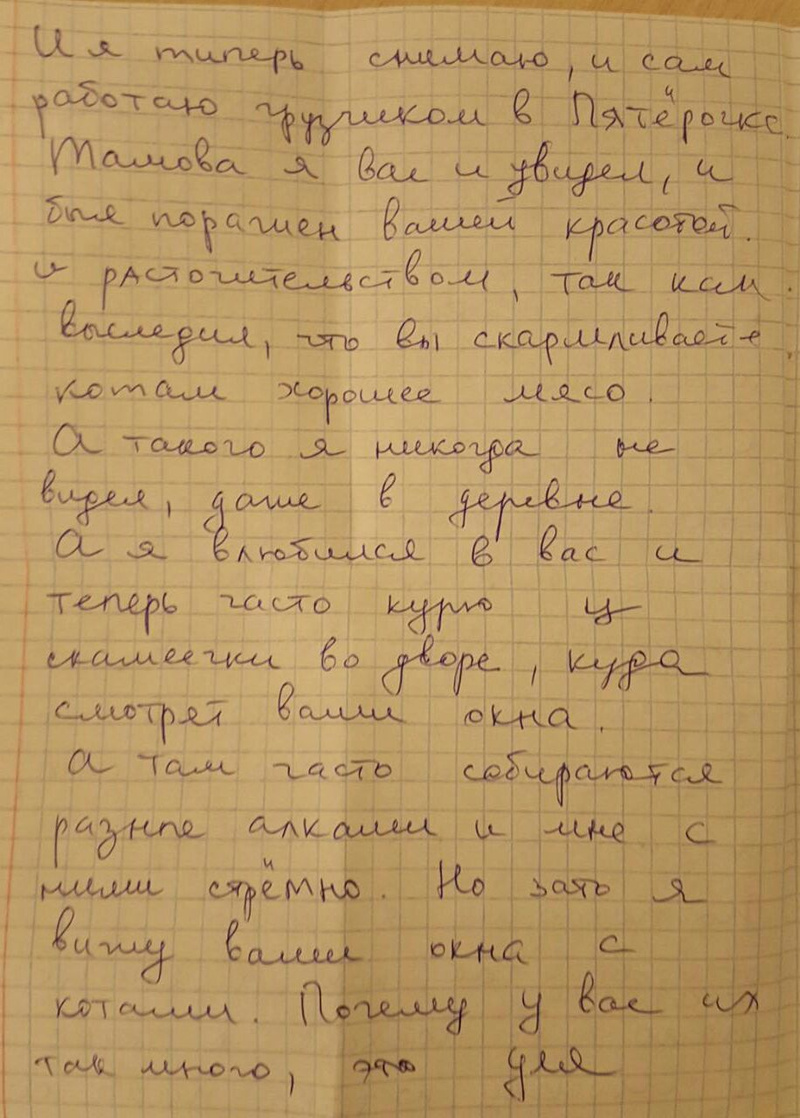 И я типерь снимаю, и сам
работаю грузчиком в Пятёрочке.
Тамова я вас и увидел, и
был поражен вашей красотой.
и расточительством, так как
выследил, что вы скармливаете
котам хорошее мясо.
А такого я никогда не
видел, даже в деревне.
А я влюбился в вас и
теперь часто курю у
скамеечки во дворе, куда
смотрят ваши окна.
А там часто собираются
разные алкаши и мне с
ними стрёмно. Но зато я
вижу ваши окна с
котами. Почему у вас их
так много, это для